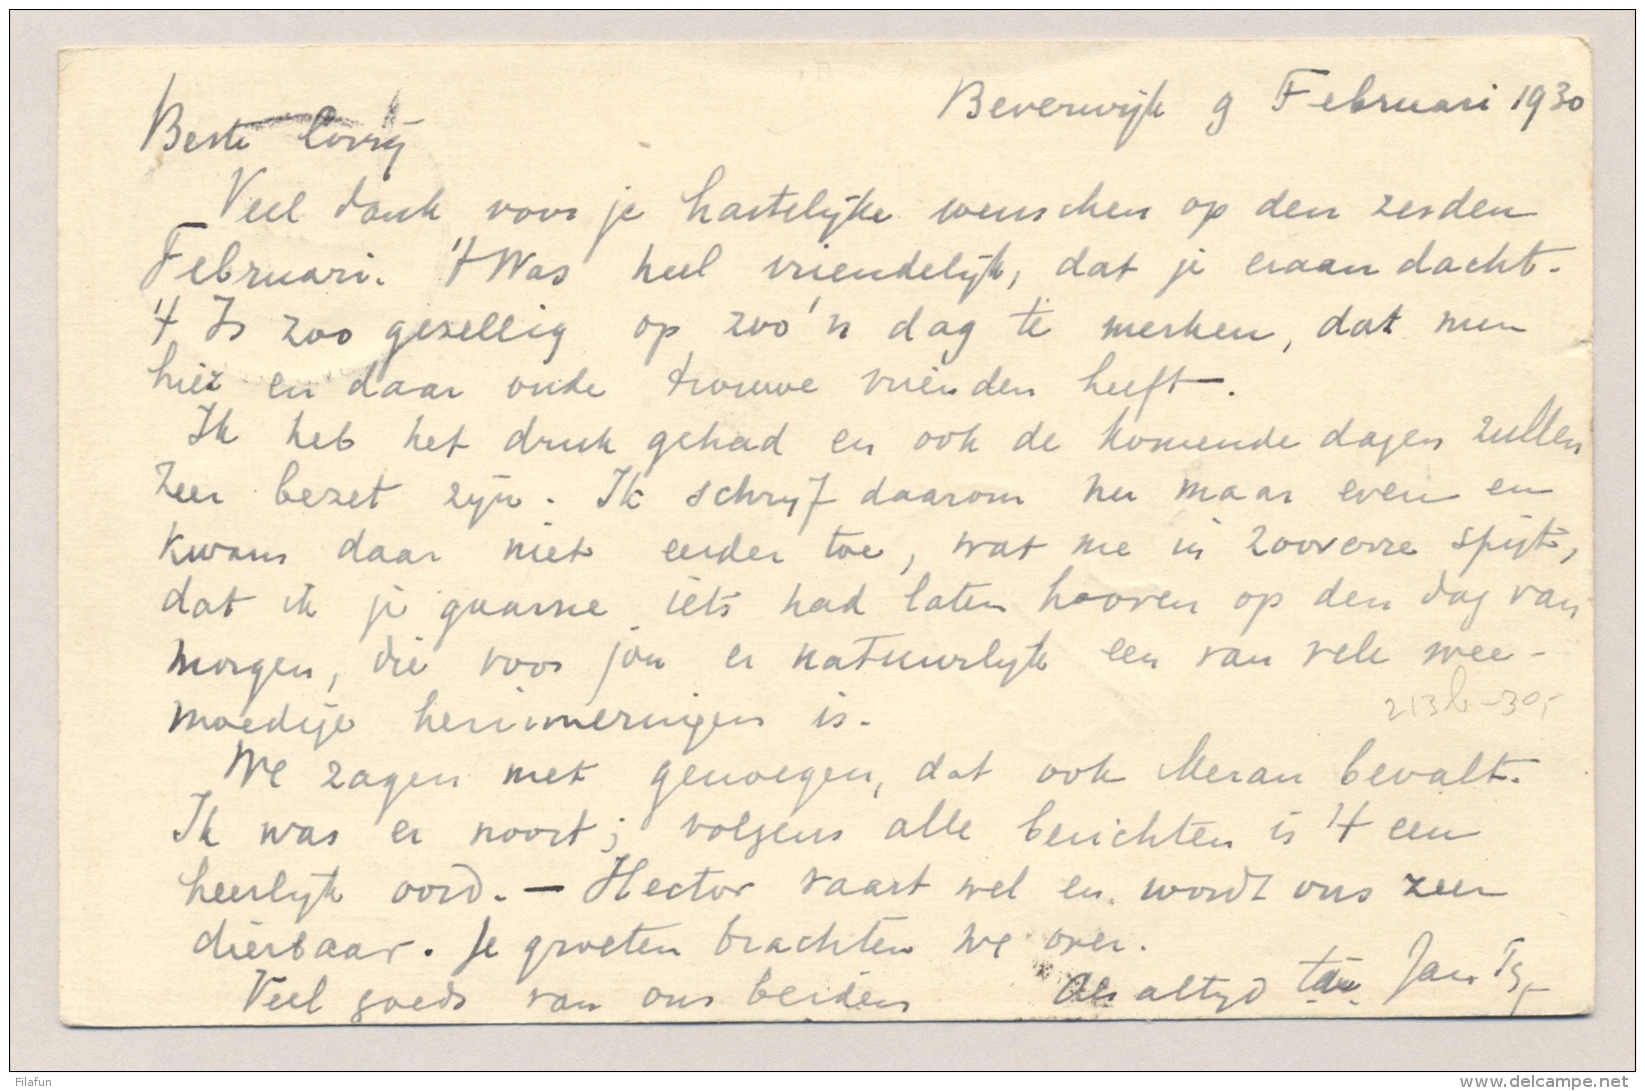 Beverwijk 9 Februari 1930
Beste Corry
Veel dank voor je hartelijke wenschen op den zesden
Februari. 't Was heel vriendelijk, dat je eraan dacht.
't Is zoo gezellig op zoo'n dag te merken, dat men
hier en daar oude trouwe vrienden heeft.
Ik heb het druk gehad en ook de komende dagen zullen
zeer bezet zijn. Ik schrijf daarom nu maar even en
kwam daar niet eerder toe, wat me in zooverre spijt,
dat ik je gaarne iets had laten hooren op den dag van
morgen, die voor jou er natuurlijk een van vele wee-
moedige herinneringen is.
213b -30,-
We zagen met genoegen, dat ook Meran bevalt.
Ik was er nooit; volgens alle berichten is 't een
heerlijk oord. — Hector vaart wel en wordt ons zeer
dierbaar. Je groeten brachten we over.
Veel goeds van ons beiden Als altijd Jan
Filafun
www.delcampe.net